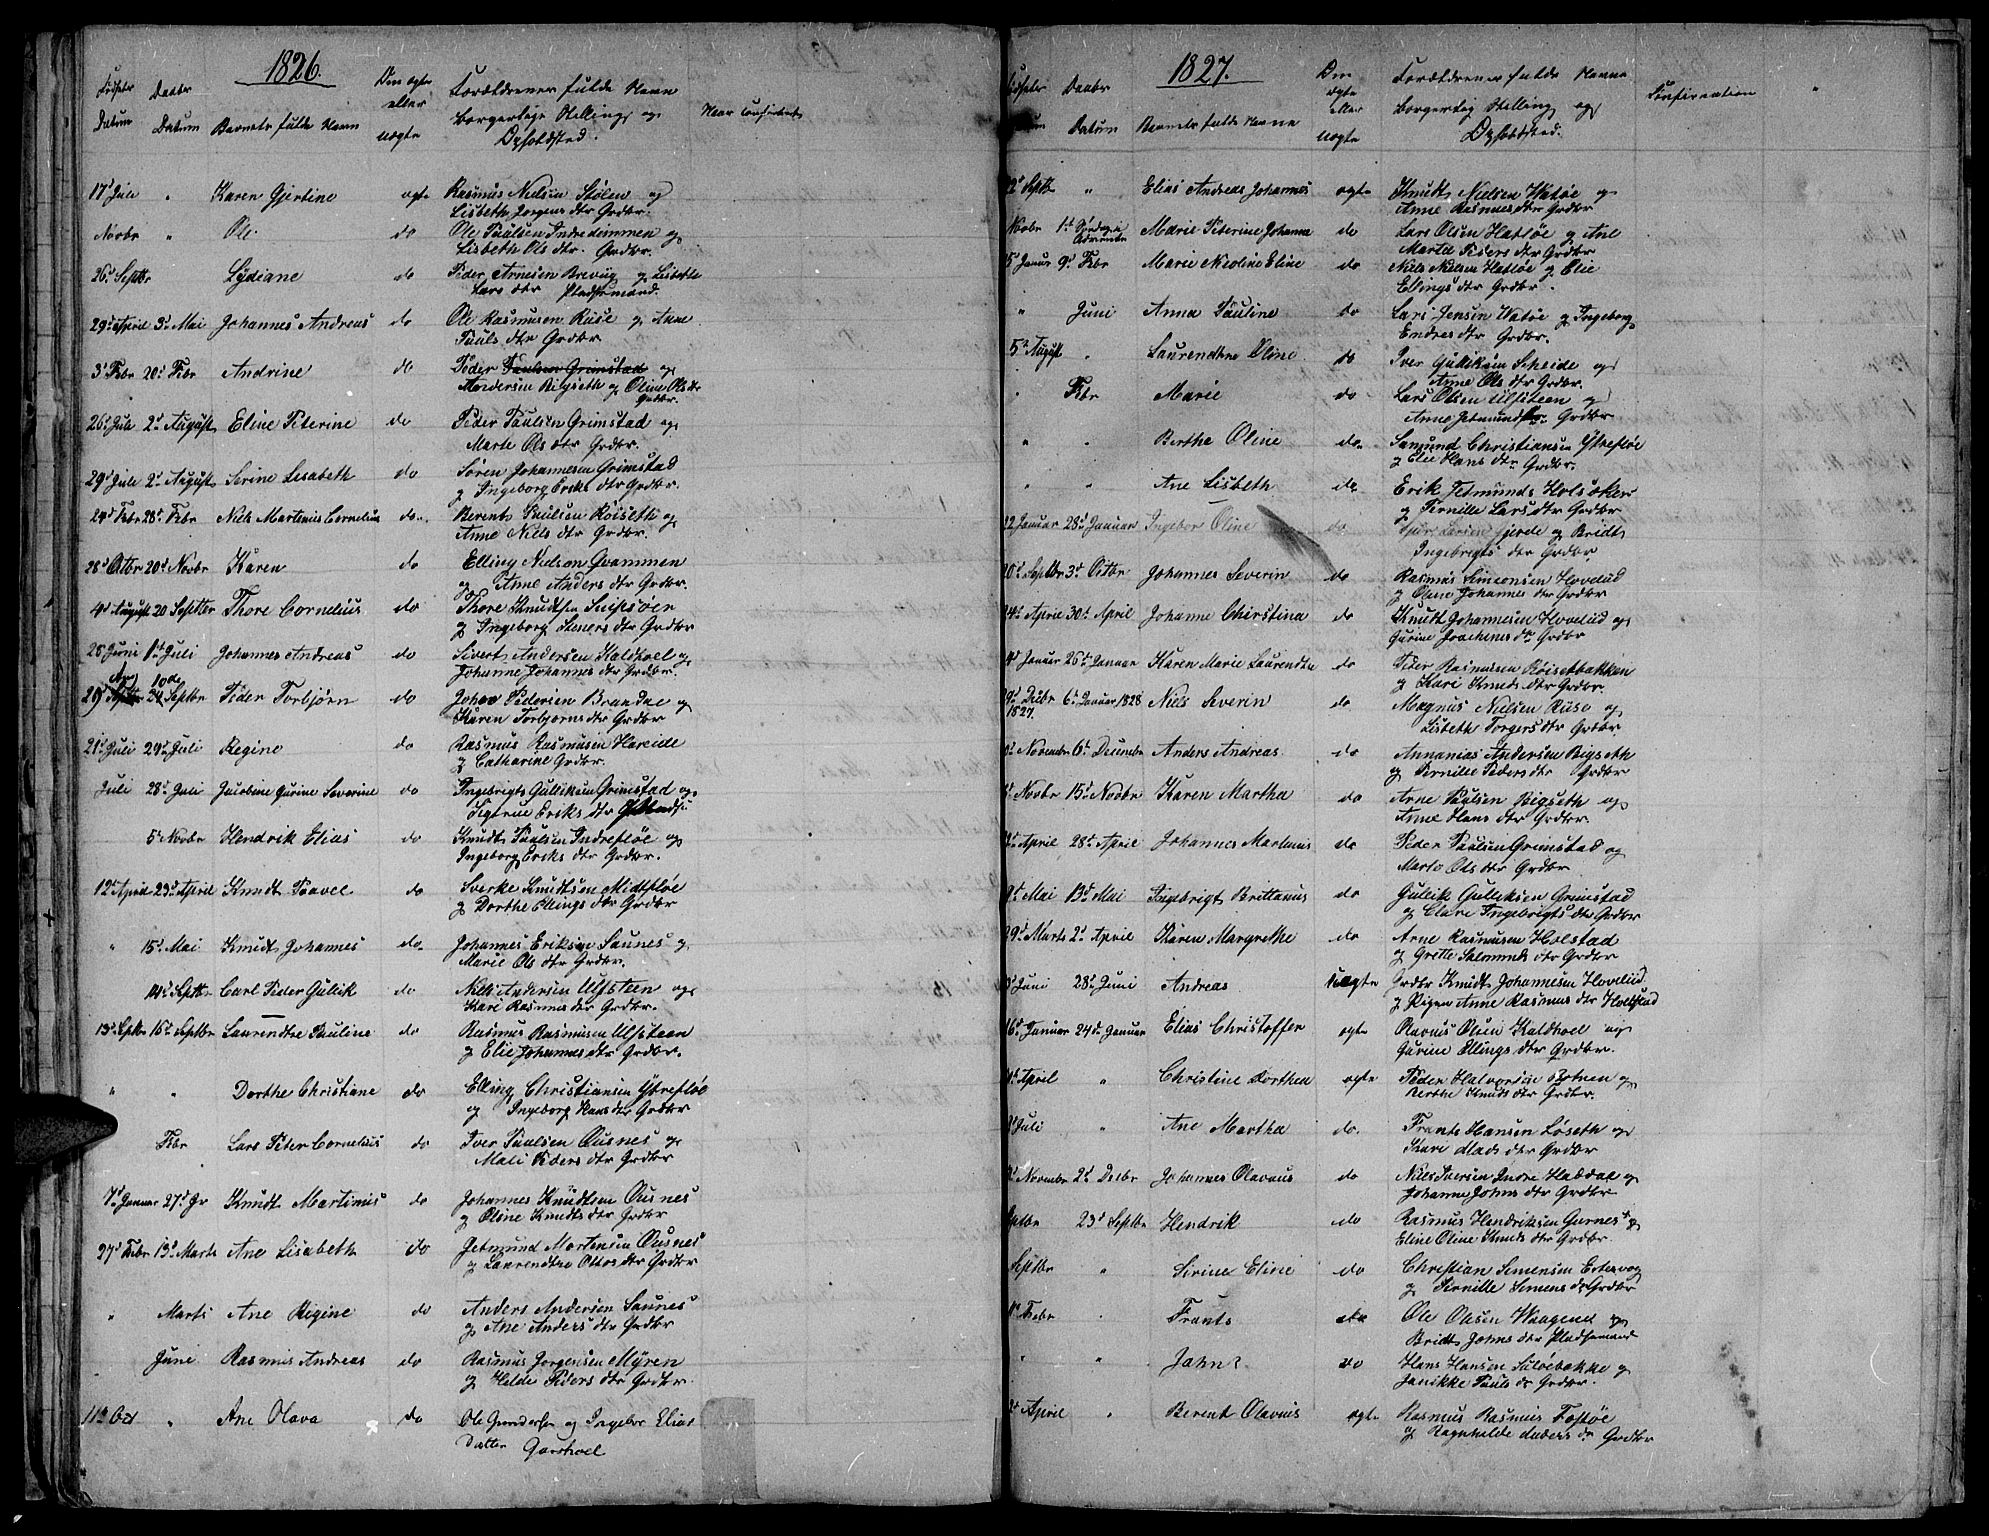 1826.
Fødsels Datum
Daabs Datum
Barnets fulde Navn
Om ægte eller uægte
Forældrenes fulde Navn borgerlige Stilling og Opholdsted.
Naar confirmeret
17d Juli " Karen Gjertine ægte Rasmus Nielsen Stølen og
Lisbeth Jørgens dtr Grdbr.
Novbr " Ole do Ole Paulsen Indredimmen og
Lisbeth Ols dtr. Grdbr.
26d Septbr Lydiane do Peder Arnesen Brevig og Lisbeth
Lars dtr Pladsemand.
29d April 3d Mai Johannes Andreas do Ole Rasmusen Ruse og Anne
Pauls dtr Grdbr.
3d Febr 20d Febr Andrine do Peder Paulsen Grimstad og
Andersen Rigseth og Oline Ols dtr
Grdbr.
26d Juli 2d August Eline Peterine do Peder Paulsen Grimstad og
Marte Ols dtr Grdbr.
29d Juli 2d August Serine Lisabeth do Søren Johannesen Grimstad
og Ingeborg Eriks dtr Grdbr.
24d Febr 28d Febr Niels Martinus Cornelius do Berent Paulsen Røiseth og
Anne Niels dtr Grdbr.
28d Octbr 20d Novbr Karen do Elling Nielsen Qvammen
og Anne Anders dtr Grdbr.
4d August 20 Septbr Thore Cornelius do Thore Knudtsen Snipsøer
og Ingeborg Steners dtr Grdbr
25 Juni 1d Juli Johannes Andreas do Sivert Andersen Kaldhoel og
Johanne Johannes dtr Grdbr.
Aug 10de
29 Septbr 24 Septbr Peder Torbjørn do Johan Pedersen Brandae og
Karen Torbjørns dtr Grdbr
21d Juli 29d Juli Regine do Rasmus Rasmusen Hareide
og Catharine Grdbr.
Juli 28d Juli Jacobine Gurine Severine do Ingebrigt Gulliksen Grimstad og
Sigrine Eriks dtr
5d Novbr Hendrik Elias do Knudt Paulsen Indrefløe og
Ingeborg Eriks dtr Grdbr.
12d April 23d April Knudt Paavel do Sverke Knudtsen Midtfløe
og Dorthe Ellings dtr Grdbr
" 15d Mai Knudt Johannes do Johannes Eriksen Saunes og
Marie Ols dtr Grdbr.
14d Septbr Carl Peder Gullik do Niels Andersen Ulfsteen og
Kari Rasmus dtr Grdbr.
13d Septbr 16d Septbr Laurendtse Pauline do Rasmus Rasmusen Ulfsteen
og Elie Johannes dtr Grdbr.
" " Dorthe Christiane do Elling Christiansen Yttrefløe
og Ingeborg Hans dtr Grdbr
Febr Lars Peter Cornelius do Iver Paulsen Ousnes og
Mali Peders dtr Grdbr
7d Januar 27d Jr Knudt Martinus do Johannes Knudtsen Ousnes
og Oline Knudts dtr Grdbr
27d Febr 13d Marts Ane Lisabeth do Jetmund Mortensen Ousnes
og Laurendtse Ottos dtr Grdbr
" Marts Ane Regine do Anders Andersen Saunes
og Ane Anders dtr Grdbr
Juni Rasmus Andreas do Rasmus Jørgensen Myren
og Helde Peders dtr Grdbr.
11d Oct " Ane Olava do Ole Gundersen og Ingebor Elias
Datter Garshoel
1827.
Daabs Datum
Barnets fulde Navne
Om ægte eller uægte
Forældrenes fulde Navne borgerlig Stilling og Opholdsted.
Confirmation
22d Septbr " Elias Andreas Johannes ægte Knudt Nielsen Watøe og
Anne Rasmus dtr Grdbr
Novbr 1d Søndag i Advendte Marie Peterine Johanna do Lars Olsen Hatløe og Ane
Marta Peders dtr Grdbr
5 Januar 9d Febr Marie Nicoline Eline do Niels Nielsen Hatløe og Elie
Ellings dtr Grdbr.
" Juni Anna Pauline do Lars Jensen Watøe og Ingeborg
Endres dtr Grdbr.
5d August " Laurendtse Oline do Iver Gulliksen Scheide og
Anne Ols dtr Grdbr.
" Febr Marie do Lars Olsen Ulfsteen og
Anne Jetmunds Grdbr
" " Berthe Oline do Samund Christiansen Yttrefløe
og Elie Hans dtr Grdbr.
" " Ane Lisbeth do Erik Jetmunds Holsøker
og Pernille Lars dtr Grdbr
22 Januar 28d Januar Ingebor Oline do Larsen Gjerde og Bridt
Ingebrigts dtr Grdbr
20d Septbr 3d Octbr Johannes Severin do Rasmus Simensen Hovelud
og Oline Johannes dtr Grdbr
24d April 30d April Johanne Christina do Knudt Johannesen Hovelud og
Gurine Joachims dtr Grdbr
4d Januar 26d Januar Karen Marie Laurendtse do Peder Rasmusen Røisetbakken
og Kari Knuds dtr Grdbr.
29d Decbr 1827. 6d Januar 1828 Niels Severin do Magnus Nielsen Ruse og
Lisbeth Torgers dtr Grdbr
November 6d December Anders Andreas do Annanias Andersen Rigseth
og Pernille Peders dtr Grdbr
Novbr 15d Novbr Karen Martha do Arne Paulsen Rigseth og
Anne Hans dtr Grdbr.
April 28d April Johannes Martinus do Peder Paulsen Grimstad og
Marte Ols dtr Grdbr
9d Mai 13d Mai Ingebrigt Brittanus do Gullik Gulliksen Grimstad
og Clare Ingebrigts dtr Grdbr
29d Marts 2d April Karen Margrethe do Arne Rasmusen Holstad
og Grette Salmunds dtr Grdbr
Juni 28d Juni Andreas uægte Grdbr Knudt Johannesen Hovelud
og Pigen Anne Rasmus dtr Holstad
16d Januar 24d Januar Elias Christoffer ægte Olavus Olsen Kaldhoel og
Gurine Ellings dtr Grdbr.
April " Christine Dorthea ægte Peder Halvorsen Botnen og
Berthe Knuds dtr Grdbr.
Juli " Ane Martha do. Frants Hansen Løseth og
Kari Mads dtr Grdbr
November 2d Decbr Johannes Olavus do Niels Iversen Indre Habdal og
Johanne Johns dtr Grdbr
Septbr 23d Septbr Hendrik do Rasmus Hendriksen Gurnes og
Eline Oline Knuds dtr Grdbr.
Septbr " Serine Eline do Christian Simensen Estervog
og Pernille Simens dr Grdbr
Febr " Frants do Ole Olsen Waagene og
Bridt Johns dtr Pladsemand
" " Jahn do Hans Hansen Suloebakke og
Janikke Pauls dr Grdbr.
April " Berent Olavus ægte Rasmus Rasmus Fostøe
og Ragnhilde Anders dr Grdbr